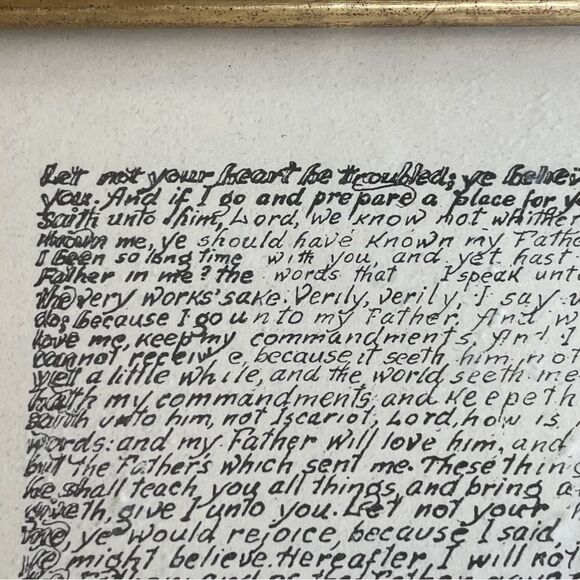 Let not your heart be troubled; ye believ
you. And if I go and prepare a place for y
Saith unto him, Lord, we know not whither
known me, ye should have known my Fathe
I been so long time with you, and yet hast
Father in me? the words that I speak unt
the very works' sake. Verily, verily, I say u
do; because I go unto my Father. And w
love me, keep my commandments. And I
cannot receive, because it seeth him, not
yet a little while, and the world seeth me
hath my commandments and keepeth
saith unto him, not Iscariot, Lord, how is
words: and my Father will love him, and
but the Father's which sent me. These thing
he shall teach you all things, and bring a
giveth, give I unto you. Let not your h
me, ye would rejoice, because I said,
ye might believe. Hereafter I will not